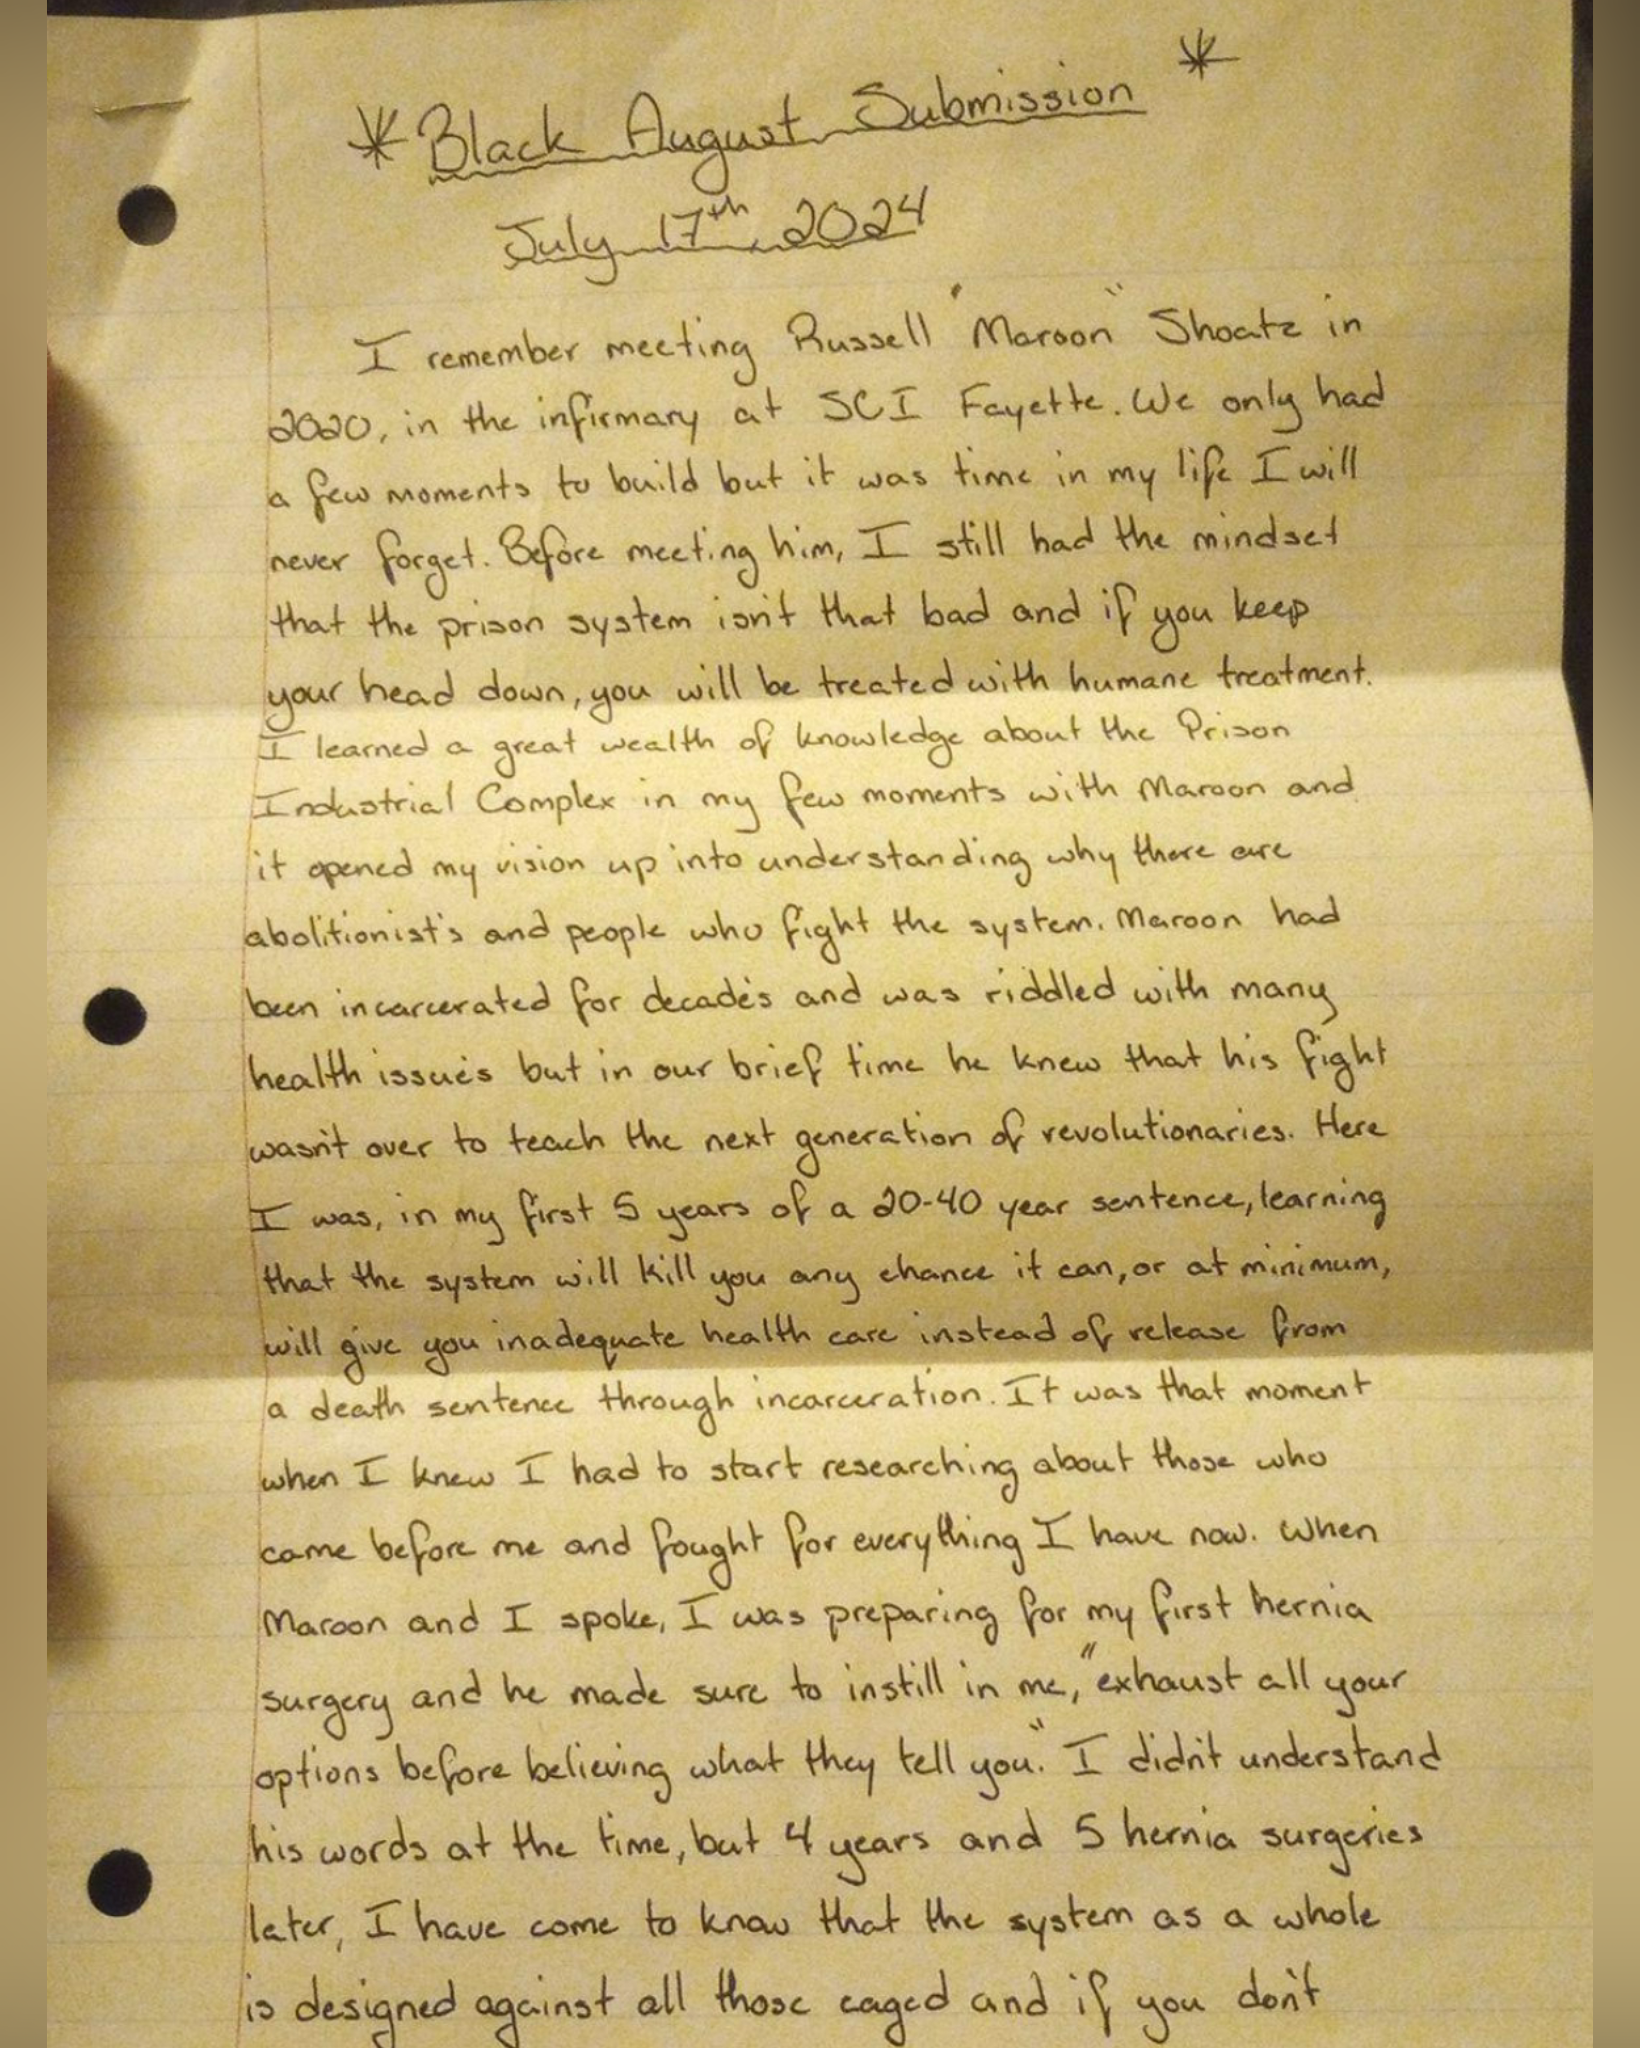 * Black August Submission *
July 17th, 2024
I remember meeting Russell "Maroon" Shoatz in
2020, in the infirmary at SCI Fayette. We only had
a few moments to build but it was time in my life I will
never forget. Before meeting him, I still had the mindset
that the prison system isn't that bad and if you keep
your head down, you will be treated with humane treatment.
I learned a great wealth of knowledge about the Prison
Industrial Complex in my few moments with Maroon and
it opened my vision up into understanding why there are
abolitionist's and people who fight the system. Maroon had
been incarcerated for decade's and was riddled with many
health issue's but in our brief time he knew that his fight
wasn't over to teach the next generation of revolutionaries. Here
I was, in my first 5 years of a 20-40 year sentence, learning
that the system will kill you any chance it can, or at minimum,
will give you inadequate health care instead of release from
a death sentence through incarceration. It was that moment
when I knew I had to start researching about those who
came before me and fought for everything I have now. When
Maroon and I spoke, I was preparing for my first hernia
surgery and he made sure to instill in me, "exhaust all your
options before believing what they tell you." I didn't understand
his words at the time, but 4 years and 5 hernia surgeries
later, I have come to know that the system as a whole
is designed against all those caged and if you don't